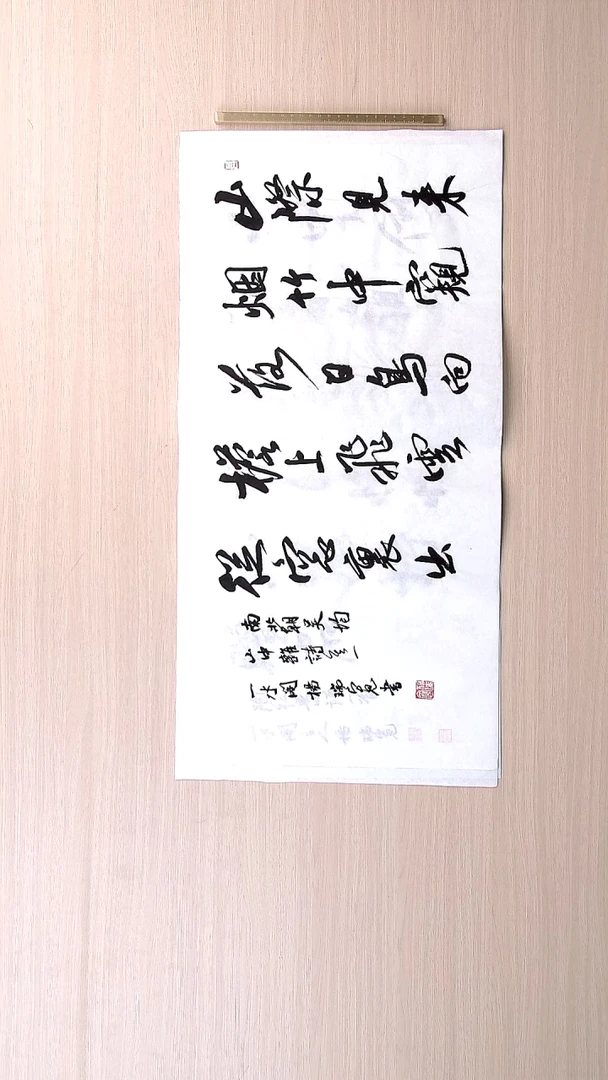 山際見来
烟竹中窺
落日鳥向
檐上飛雲
從窗裏出
南北朝吴均
山中雜詩之一
楊瑞寬書